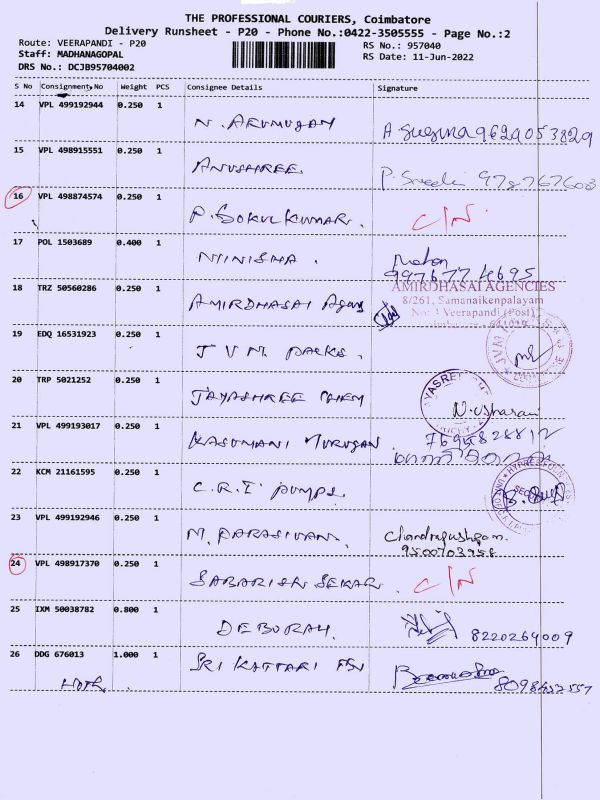 THE PROFESSIONAL COURIERS, Coimbatore
Delivery Runsheet - P20 - Phone No.:0422-3505555 - Page No.:2
Route: VEERAPANDI - P20
RS No.: 957040
Staff: MADHANAGOPAL
RS Date: 11-Jun-2022
DRS No.: DCJB95704002
S No Consignment No Weight PCS Consignee Details Signature
14 VPL 499192944 0.250 1
N. ARUMUGAM
9629053829
15 VPL 498915551 0.250 1
ANUSHREE.
9787767603
16 VPL 498874574 0.250 1
P. GOKULKUMAR. C/N
17 POL 1503689 0.400 1
NINISHA.
Mohan
9976774695
18 TRZ 50560286 0.250 1
AMIRDHASAI Agency
AMIRDHASAI AGENCIES
8/261, Samanaikenpalayam
Veerapandi (Post)
19 EDQ 16531923 0.250 1
JVM PACKS.
20 TRP 5021252 0.250 1
JAYASHREE CHEM
N. Usharani
21 VPL 499193017 0.250 1
KASUMANI MURUGAN
22 KCM 21161595 0.250 1
C.R.I PUMPS.
23 VPL 499192946 0.250 1
M. PARASIVAM.
Chandrapushpam.
9500703958
24 VPL 498917370 0.250 1
SABARISH SEKAR. C/N
25 IXM 50038782 0.800 1
DEBORAH.
8220264009
26 DDG 676013 1.000 1
SRI KATTARI
8098432557